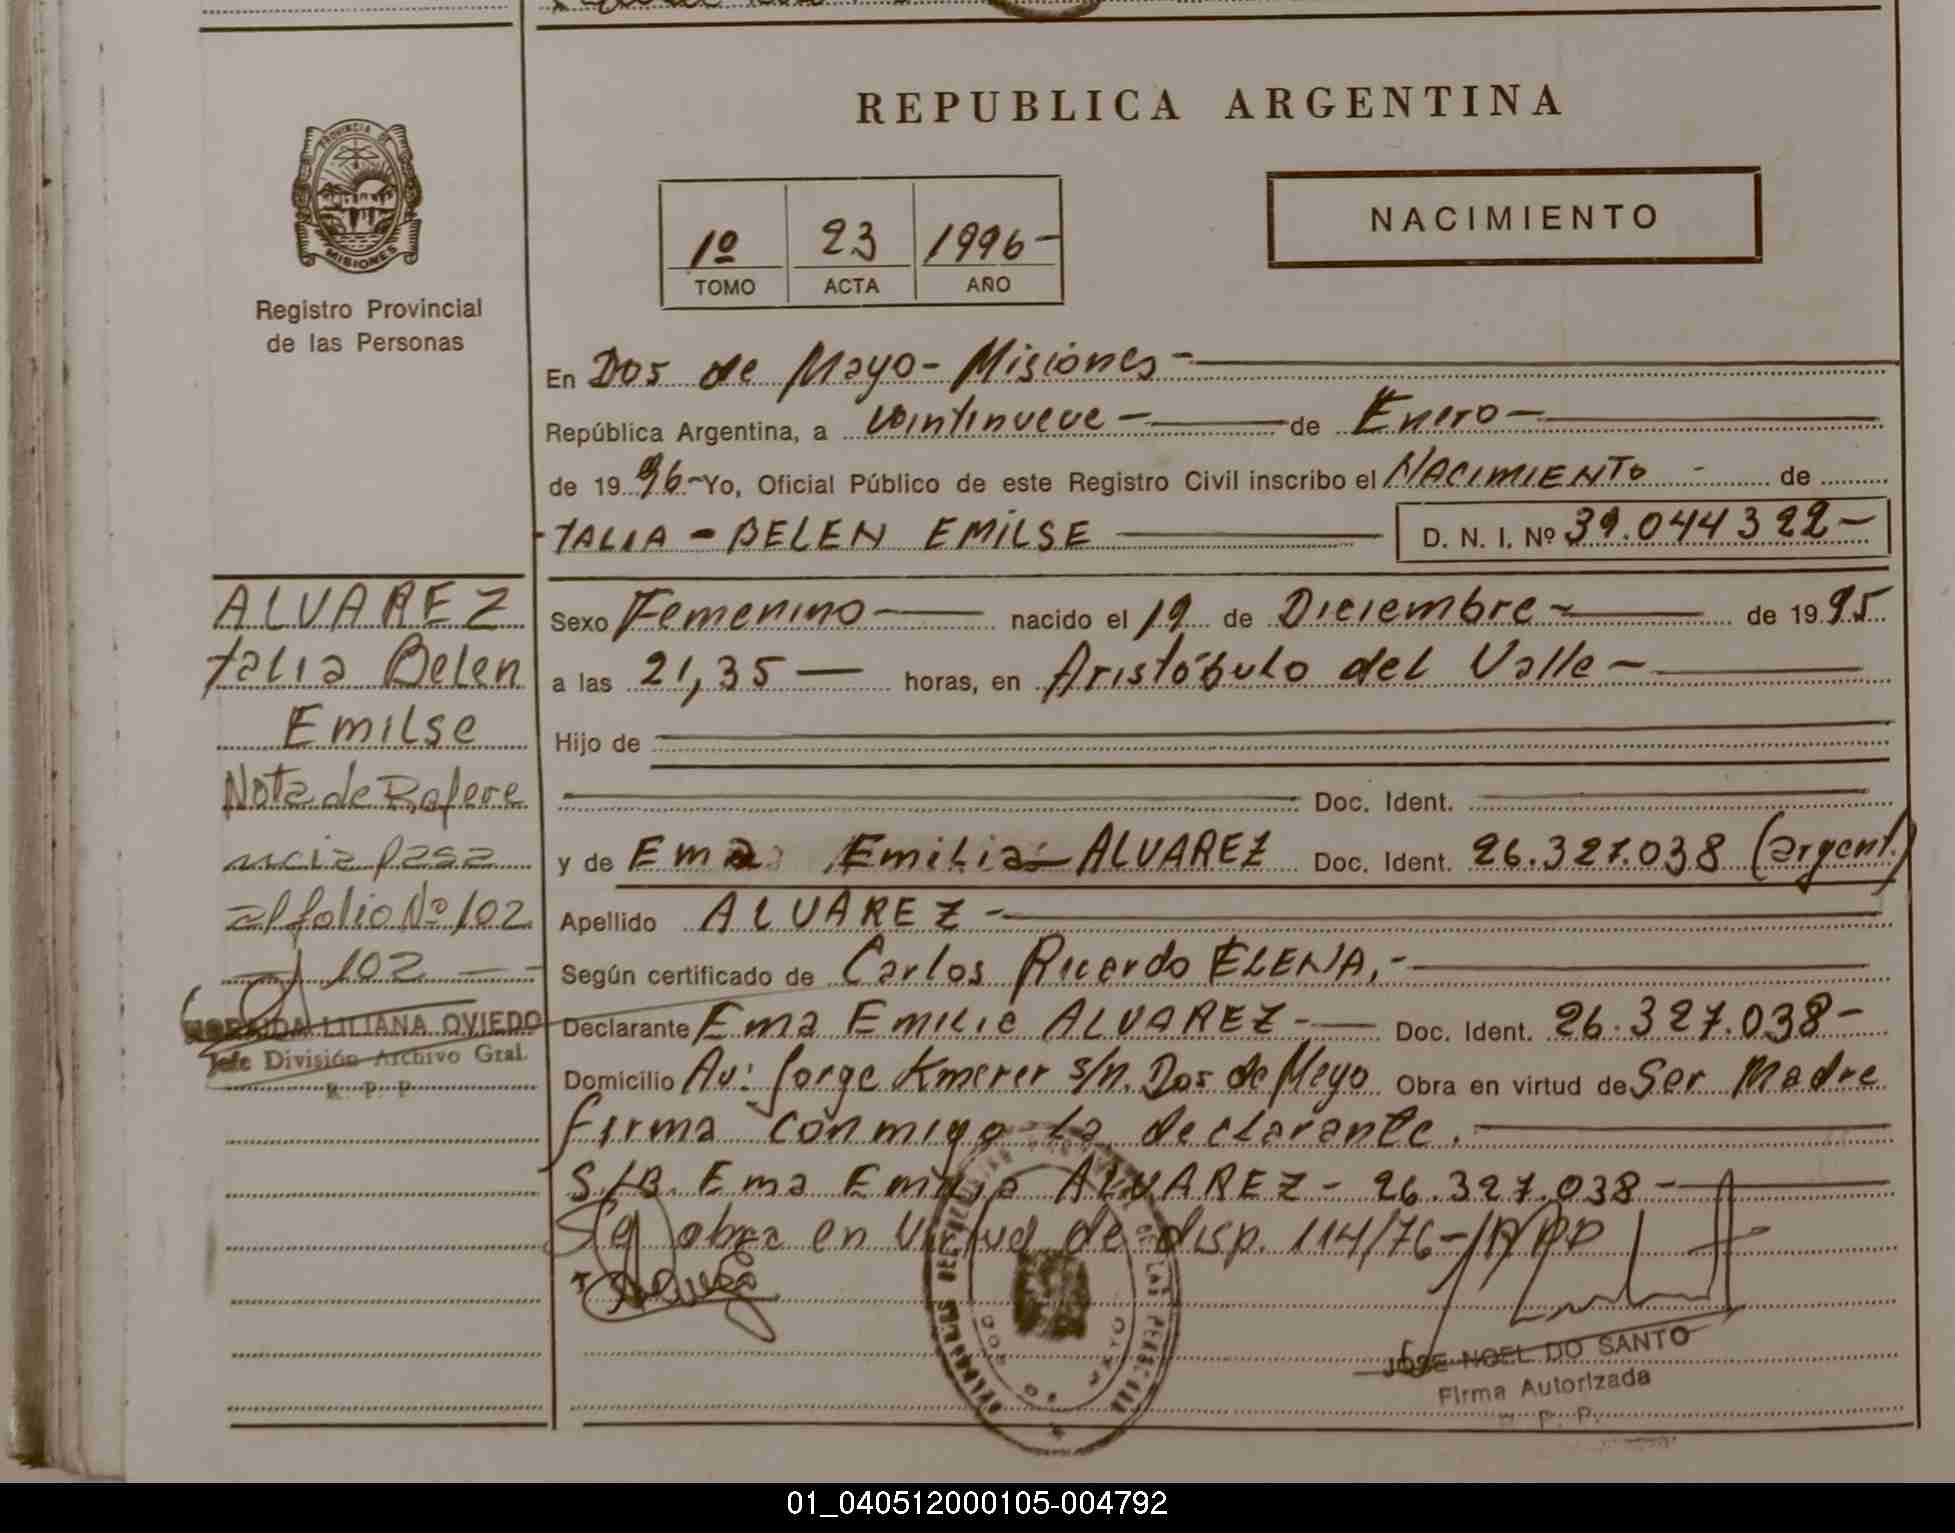 REPUBLICA ARGENTINA
PROVINCIA DE
MISIONES
Registro Provincial
de las Personas
1º 23 1996-
TOMO ACTA AÑO
NACIMIENTO
En Dos de Mayo - Misiones -
República Argentina, a veintinueve - de Enero -
de 1996 - Yo, Oficial Público de este Registro Civil inscribo el NACIMIENTO - de
TALIA - BELEN EMILSE D. N. I. Nº 39.044322-
Sexo Femenino - nacido el 19 de Diciembre - de 1995
a las 21,35 - horas, en Aristóbulo del Valle -
Hijo de
Doc. Ident.
y de Ema Emilia - ALVAREZ Doc. Ident. 26.327.038 (argent.)
Apellido ALVAREZ -
Según certificado de Carlos Ricardo ELENA,-
Declarante Ema Emilia ALVAREZ - Doc. Ident. 26.327.038-
Domicilio Av: Jorge Kmerer s/n. Dos de Mayo Obra en virtud de Ser Madre
firma conmigo la declarante.
S/B. Ema Emilia ALVAREZ - 26.327.038 -
obra en virtud de disp. 114/76-
JOSE NOEL DO SANTO
Firma Autorizada
ALVAREZ
Talia Belen
Emilse
Nota de Refere
ncia pasa
al folio Nº 102
102
LILIANA OVIEDO
Jefe División Archivo Gral.
R. P. P
01_040512000105-004792